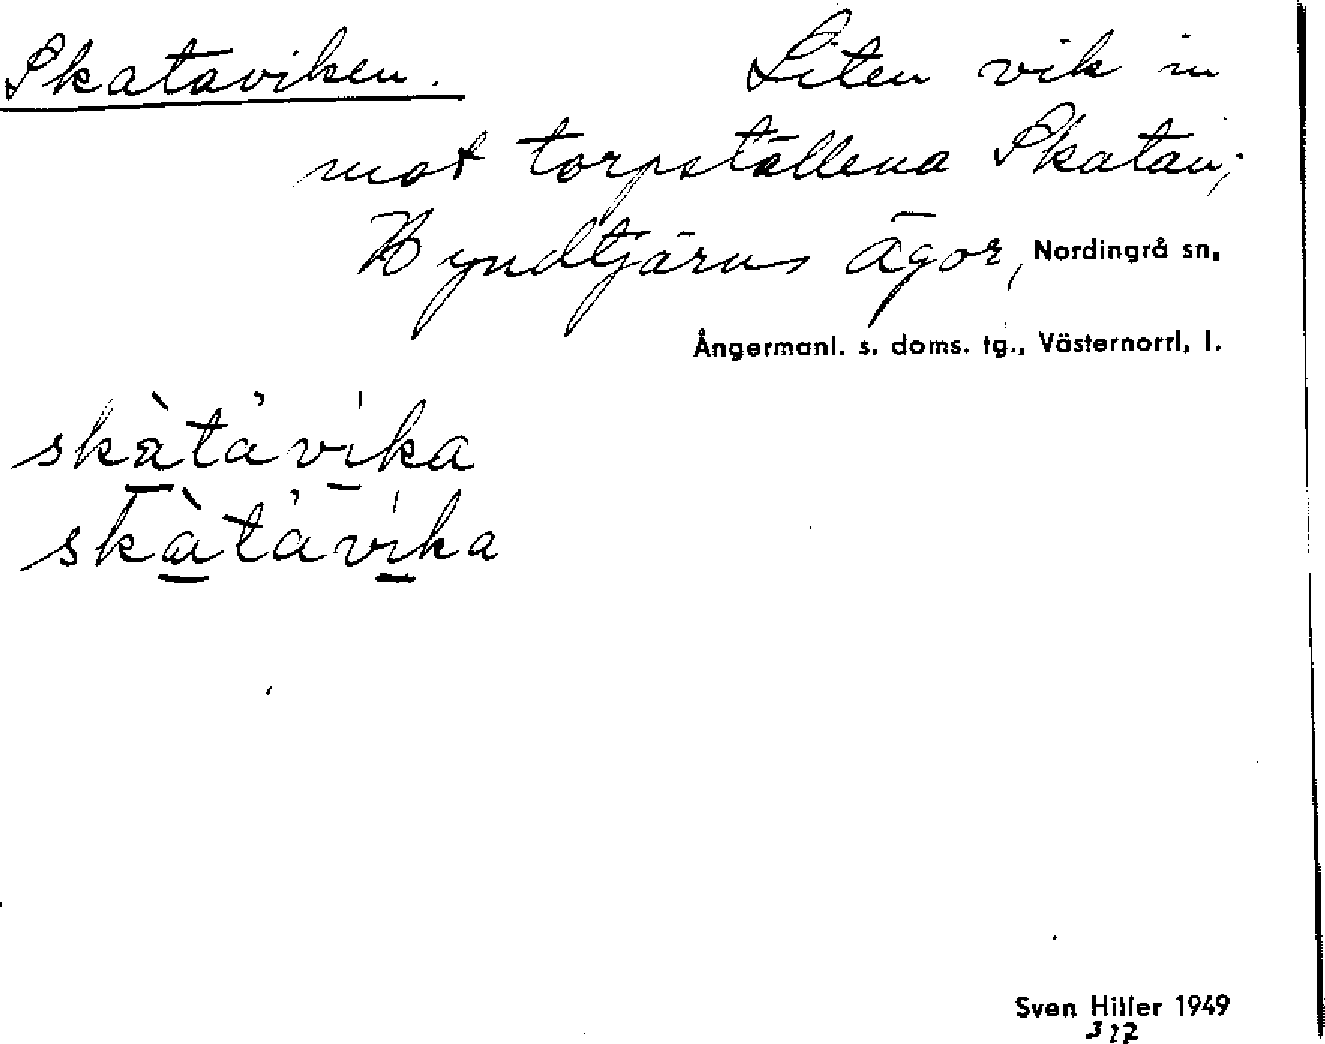 Skataviken. Liten vik in
mot torpställena Skatan;
Kyndtjärns ägor, Nordingrå sn,
Ångermanl. s. doms. tg., Västernorrl. l.
skàtàvíka
skàtàvíka
Sven Hiller 1949
317